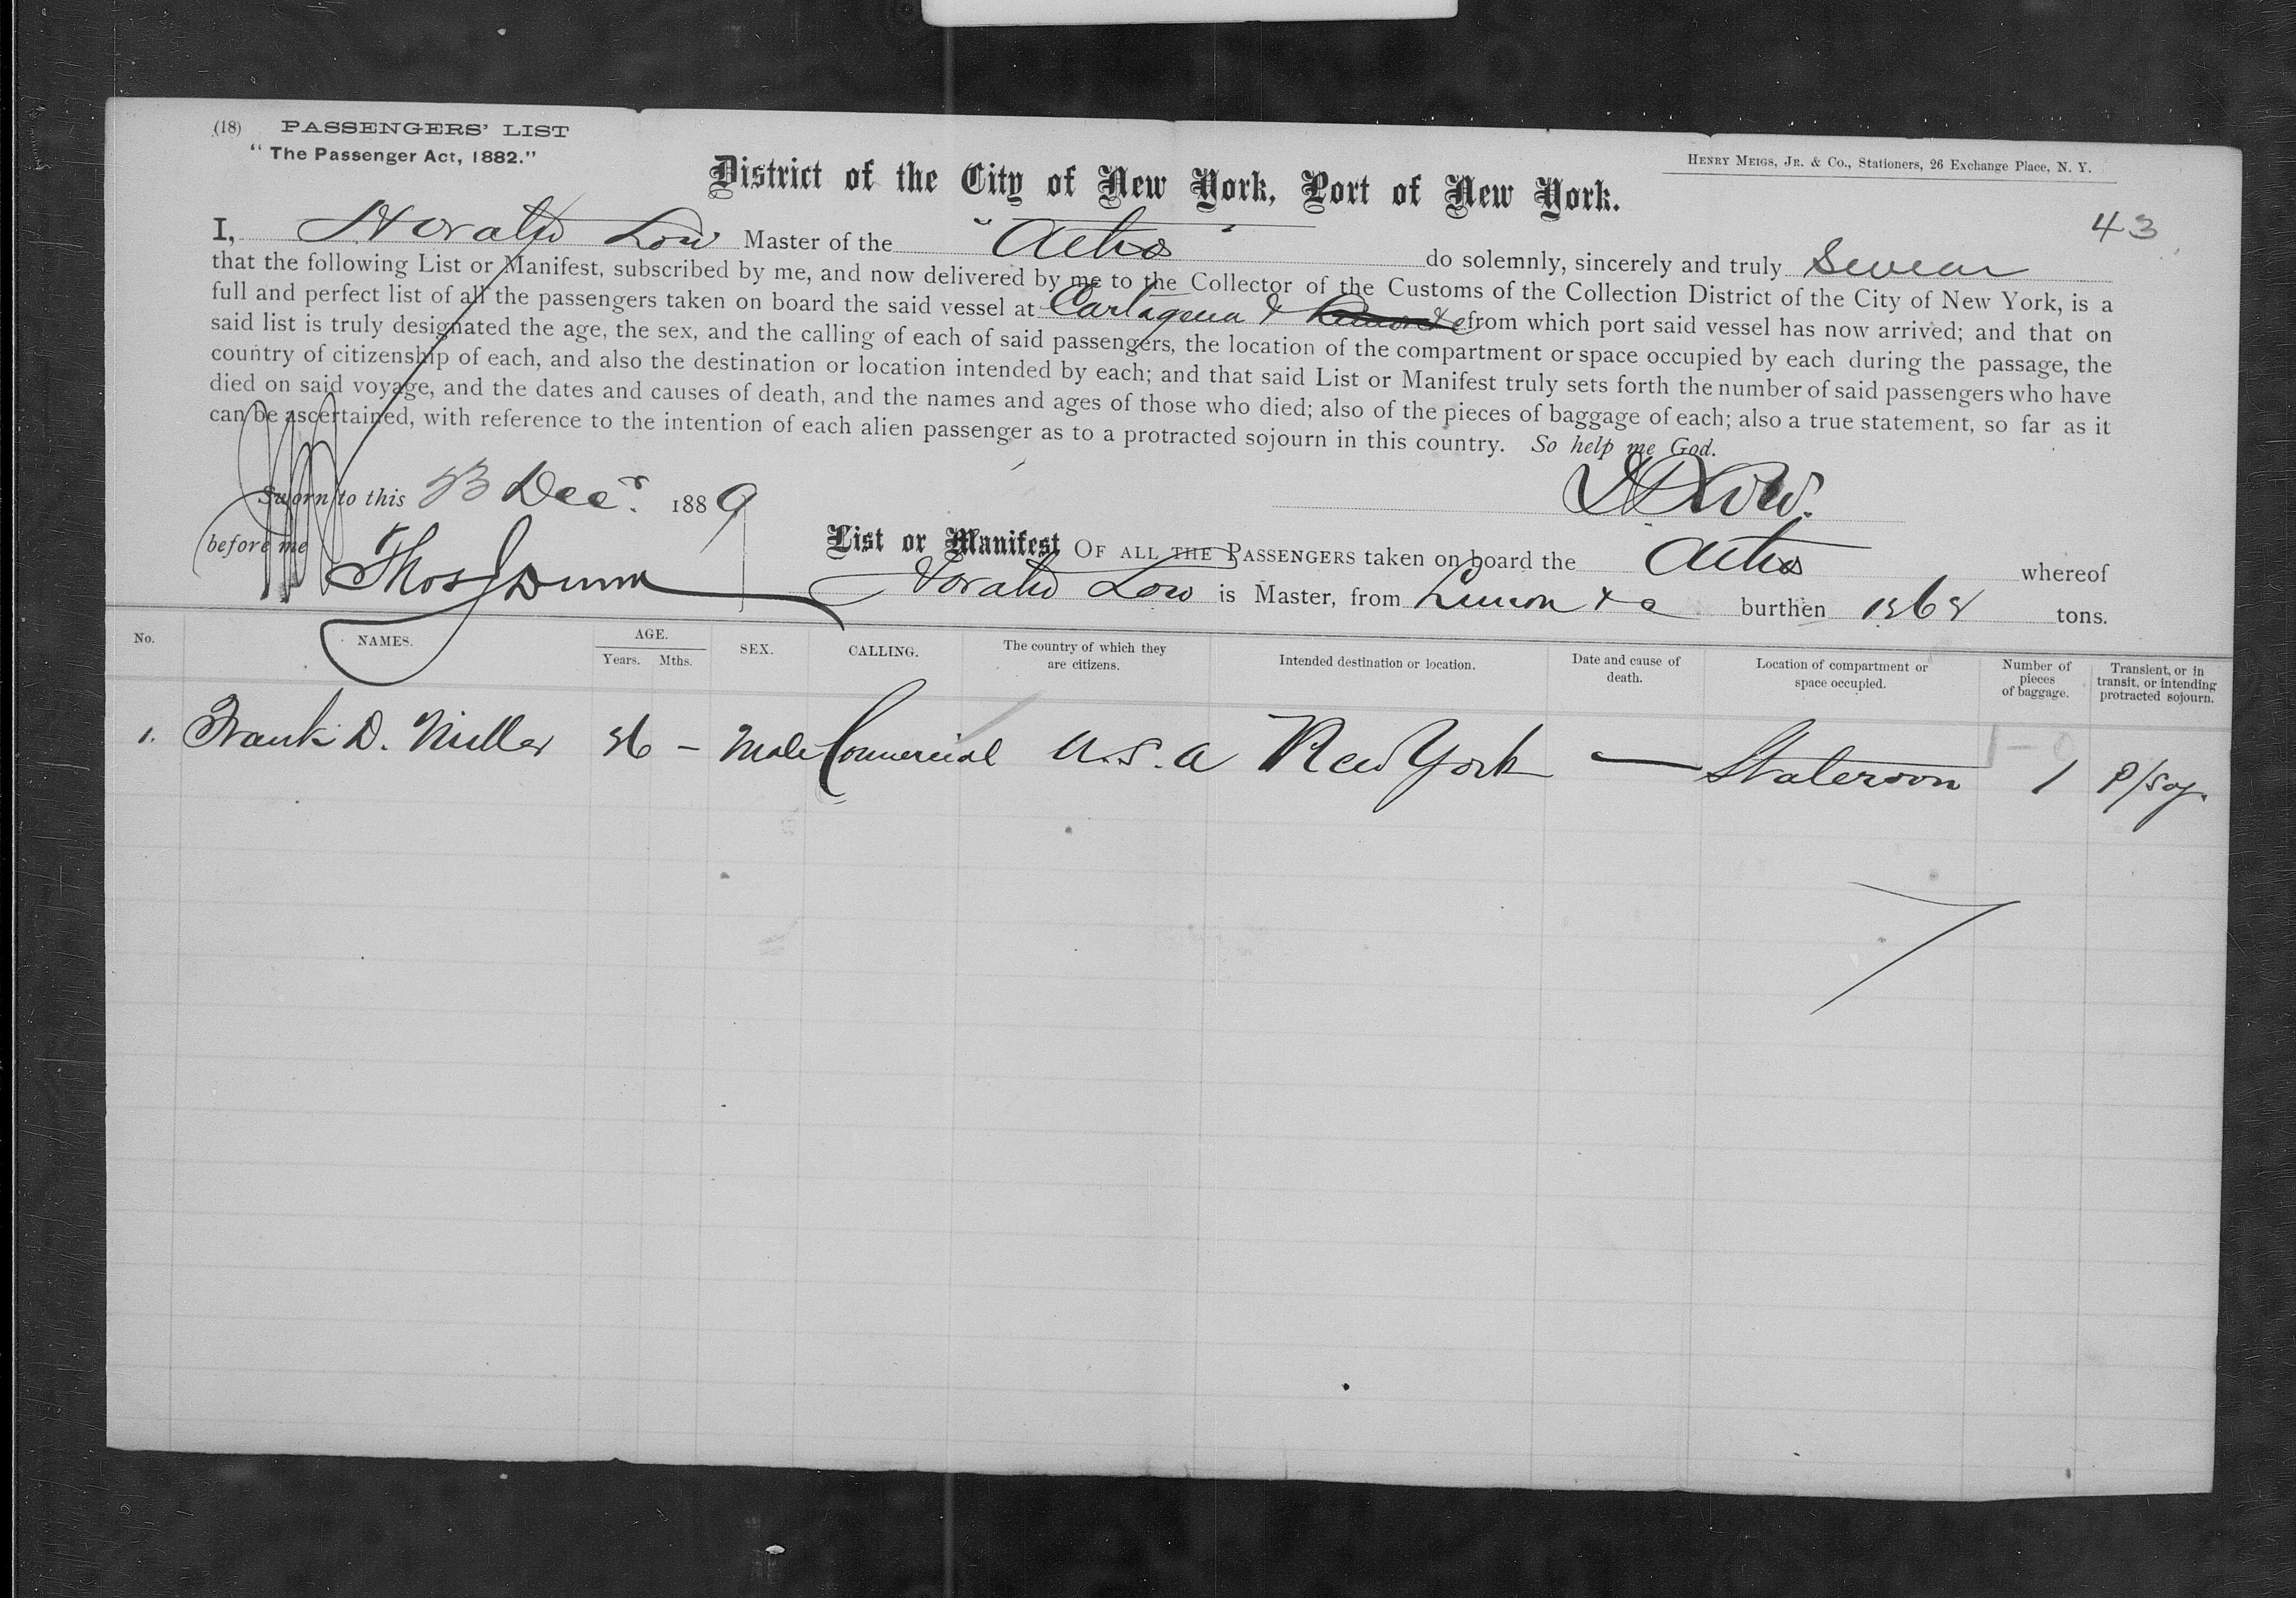 (18) PASSENGERS' LIST
"The Passenger Act, 1882."
HENRY MEIGS, JR. & CO., Stationers, 26 Exchange Place, N. Y.
District of the City of New York, Port of New York.
43
I, Horatio Low Master of the "Athos" do solemnly, sincerely and truly Swear
that the following List or Manifest, subscribed by me, and now delivered by me to the Collector of the Customs of the Collection District of the City of New York, is a
full and perfect list of all the passengers taken on board the said vessel at Cartagena & from which port said vessel has now arrived; and that on
said list is truly designated the age, the sex, and the calling of each of said passengers, the location of the compartment or space occupied by each during the passage, the
country of citizenship of each, and also the destination or location intended by each; and that said List or Manifest truly sets forth the number of said passengers who have
died on said voyage, and the dates and causes of death, and the names and ages of those who died; also of the pieces of baggage of each; also a true statement, so far as it
can be ascertained, with reference to the intention of each alien passenger as to a protracted sojourn in this country. So help me God.
Sworn to this Decr. 1889 H Low.
before me Thos J Dunn
List or Manifest OF ALL THE PASSENGERS taken on board the Athos whereof
Horatio Low is Master, from Limon & c burthen tons.
No. NAMES. AGE. Years. Mths. SEX. CALLING. The country of which they are citizens. Intended destination or location. Date and cause of death. Location of compartment or space occupied. Number of pieces of baggage. Transient, or in transit, or intending protracted sojourn.
1. Frank D. Miller 36 – Male Commercial U.S.A New York — Stateroom 1 P/soj.